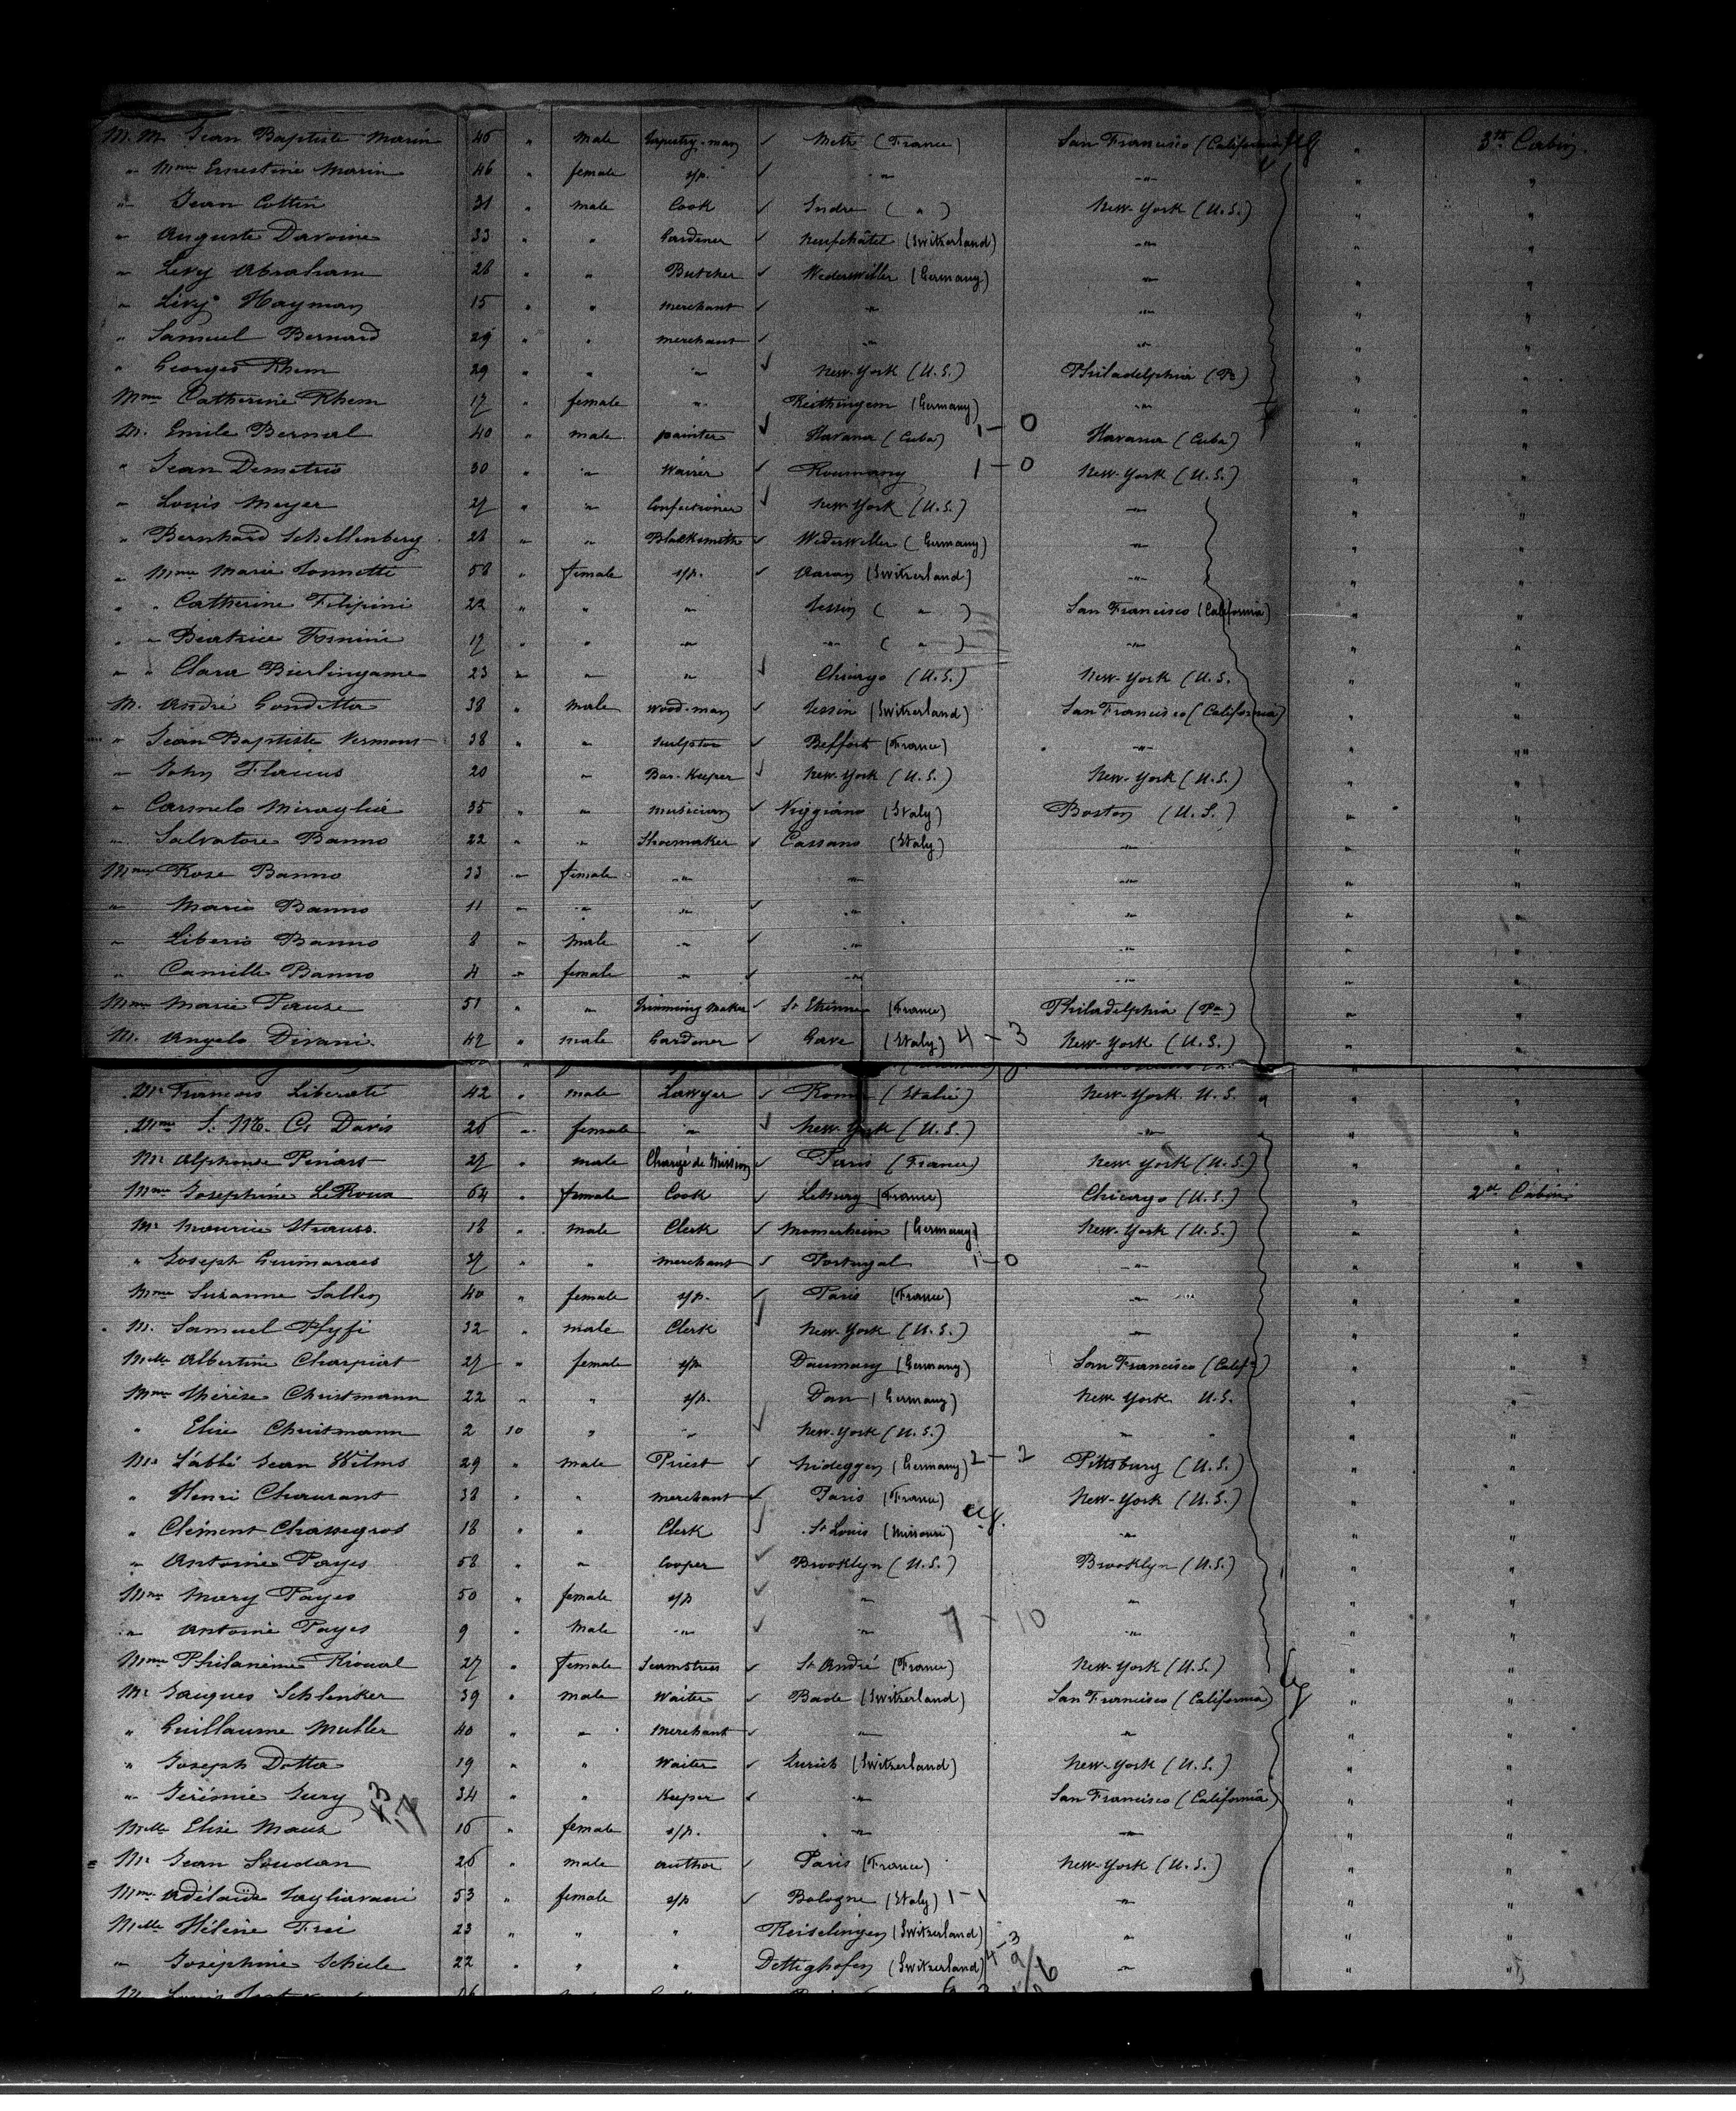 M. M. Jean Baptiste Marin 45 " male Tapestry-man ✓ Metz (France) San Francisco (California) " 3rd Cabin
" Mme Ernestine Marin 46 " female s/p. ✓ " " " "
" Jean Cottin 31 " male Cook ✓ Indre ( " ) New-York (U.S.) " "
" Auguste Davoine 33 " " Gardener ✓ Neufchâtel (Switzerland) " " "
" Levy Abraham 28 " " Butcher ✓ (Germany) " " "
" Levy Hayman 15 " " merchant ✓ " " " "
" Samuel Bernard 29 " " merchant ✓ " " " "
" Georges Rhem 29 " " " ✓ New-York (U.S.) Philadelphia (Pa) " "
Mme Catherine Rhem 17 " female " (Germany) " " "
M. Emile Bernal 40 " male painter ✓ Havana (Cuba) 1-0 Havana (Cuba) " "
" Jean Demetris 30 " " ✓ Roumany 1-0 New-York (U.S.) " "
" Louis Meyer 27 " " Confectioner ✓ New-York (U.S.) " " "
" Bernhard Schellenberg 28 " " Blacksmith ✓ (Germany) " " "
" Mme Marie Tonnette 58 " female s/p. ✓ Aarau (Switzerland) " " "
" " Catherine Filipini 22 " " " Tessin ( " ) San Francisco (California) " "
" " Beatrice Fornini 17 " " " " ( " ) " " "
" " Clara Bierlingame 23 " " " ✓ Chicago (U.S.) New-York (U.S. " "
M. André Gondetta 38 " male Wood-man ✓ Tessin (Switzerland) San Francisco (California) " "
" Jean Baptiste Vermont 38 " " Sculptor ✓ Belfort (France) " " "
" John Flaus 20 " " Bar-Keeper ✓ New-York (U.S.) New-York (U.S.) " "
" Carmelo Miraglia 35 " " musician ✓ Viggiano (Italy) Boston (U.S.) " "
" Salvatore Banno 22 " " Shoemaker ✓ Cassano (Italy) " " "
Mme Rose Banno 33 " female " " " " "
" Maria Banno 11 " " " ✓ " " " "
" Liberio Banno 8 " male " ✓ " " " "
" Camille Banno 4 " female " ✓ " " " "
Mme Marie Pause 51 " " Trimming Maker ✓ St Etienne (France) Philadelphia (Pa) " "
M. Angelo Divani. 42 " male Gardener ✓ (Italy) 4-3 New-York (U.S.) " "
Mr François Liberati 42 " male Lawyer ✓ Rome (Italie) New-York U.S. " "
Mme S. M. C. Davis 26 " female " ✓ New-York (U.S.) " " "
Mr Alphonse Pinart 27 " male Chargé de Mission ✓ Paris (France) New York (U.S.) " "
Mme Josephine LeRoux 64 " female Cook ✓ (France) Chicago (U.S.) " 2nd Cabin
Mr Maurice Strauss. 18 " male Clerk ✓ Momerheim (Germany) New-York (U.S.) " "
" Joseph Guimaraes 37 " " merchant ✓ Portugal 1-0 " " "
Mme Suzanne Salles 40 " female s/p. ✓ Paris (France) " " "
M. Samuel Pfyfi 32 " male Clerk ✓ New-York (U.S.) " " "
Melle Albertine Charpiat 27 " female s/p (Germany) San Francisco (Calif.) " "
Mme Thérèse Christmann 22 " " s/p. (Germany) New-York U.S. " "
" Elise Christmann 2 10 " " ✓ New-York (U.S.) " " "
Mr L'abbé Jean Wilms 29 " male Priest ✓ Nideggen (Germany) 2-2 Pittsburg (U.S.) " "
" Henri Chaurant 38 " " merchant ✓ Paris (France) New-York (U.S.) " "
" Clément Chassegros 18 " " Clerk ✓ St Louis (Missouri) " " "
" Antoine Payes 58 " " Cooper ✓ Brooklyn (U.S.) Brooklyn (U.S.) " "
Mme Mary Payes 50 " female s/p ✓ " " " "
" Antoine Payes 9 " Male " ✓ " 7-10 " " "
Mme Philanine Rioual 27 " female Seamstress ✓ St André (France) New-York (U.S.) " "
Mr Jaques Schlenker 39 " male Waiter ✓ Basle (Switzerland) San Francisco (California) " "
" Guillaume Muller 40 " " Merchant ✓ " " " "
" Joseph Dotta 19 " " Waiter ✓ Zurich (Switzerland) New-York (U.S.) " "
" Jérémie Jury 34 " " Keeper ✓ " San Francisco (California) " "
Melle Elise Maux 16 " female s/p. " " " "
Mr Jean Soudan 26 " male author ✓ Paris (France) New-York (U.S.) " "
Mme Adélaïde Tagliavani 53 " female s/p ✓ Bologne (Italy) 1-1 " " "
Melle Hélène Frei 23 " " " (Switzerland) " " "
" Joséphine Scheile 22 " " " Dettighofen (Switzerland) 4-3 " " "